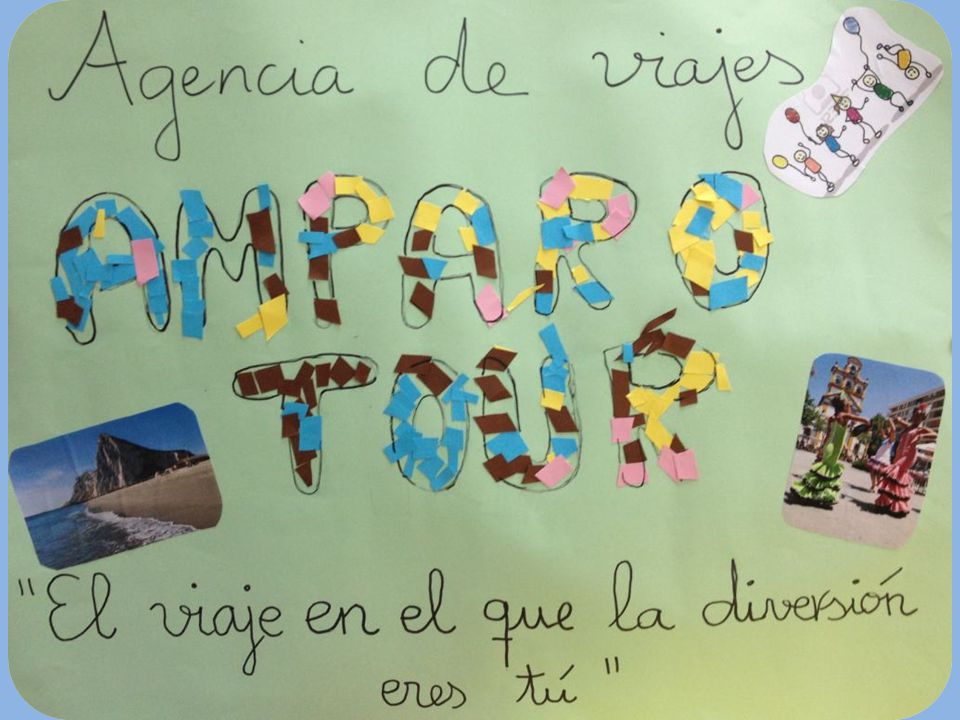 Agencia de viajes
AMPARO
TOUR
"El viaje en el que la diversión
eres tú"